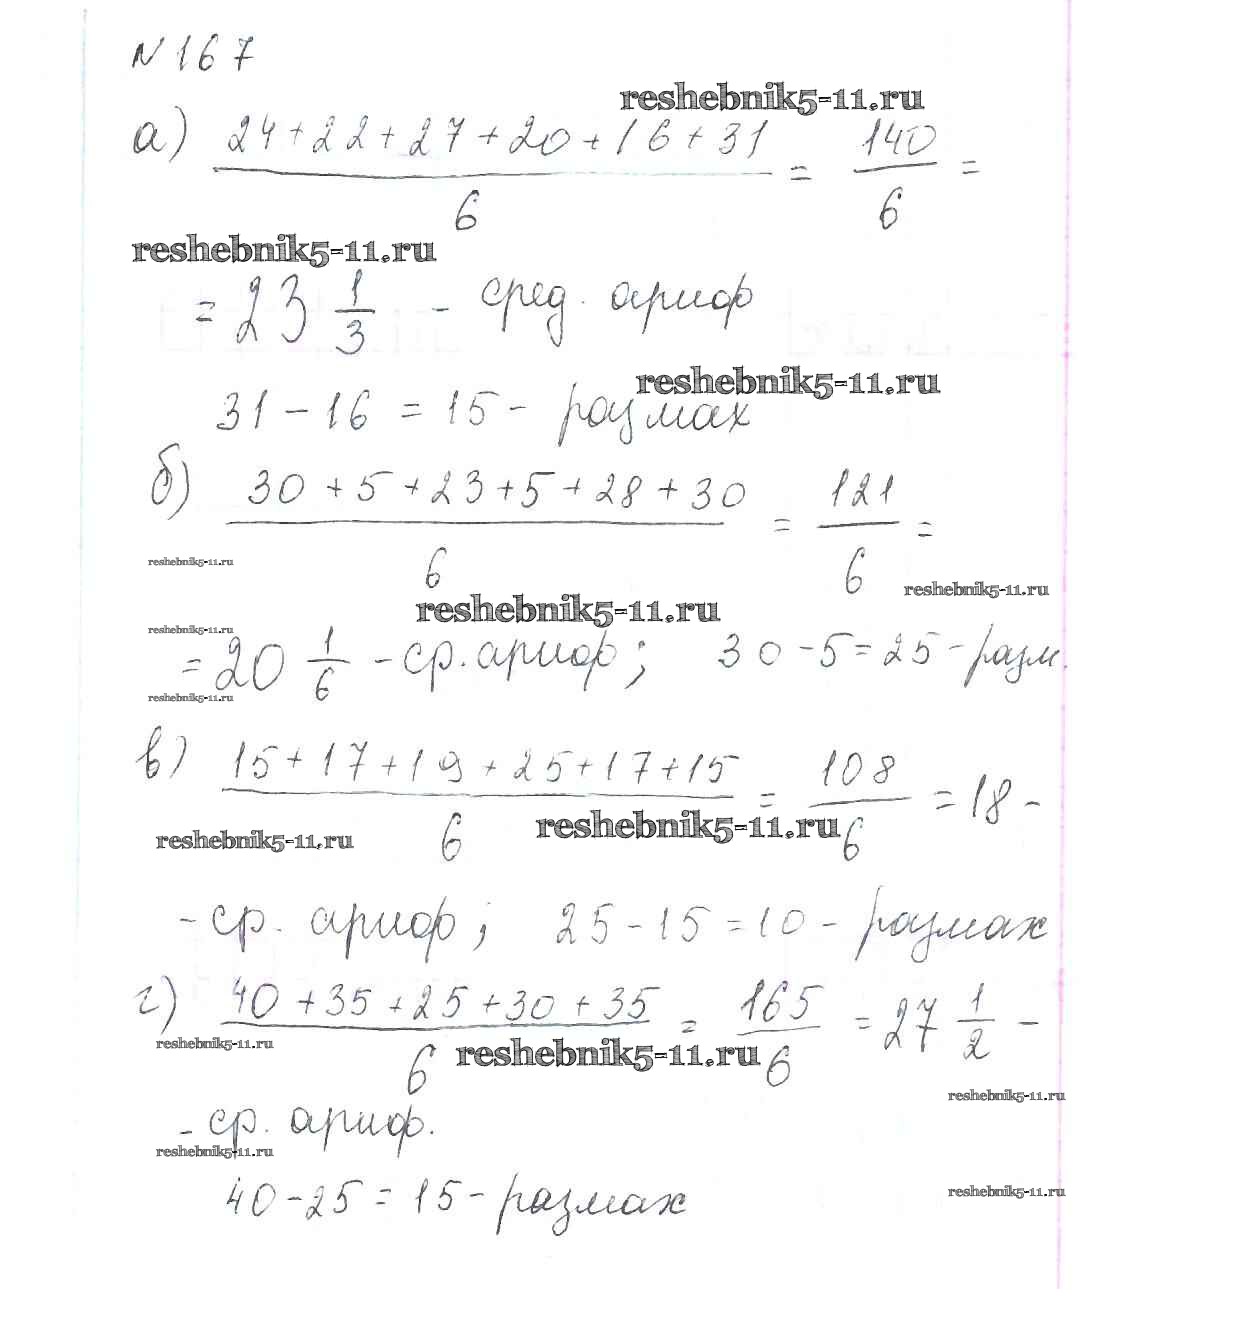 N 167
reshebnik5-11.ru
а) 24+22+27+20+16+31 / 6 = 140 / 6 =
reshebnik5-11.ru
= 23 1/3 - сред. ариф
reshebnik5-11.ru
31 - 16 = 15 - размах
б) 30+5+23+5+28+30 / 6 = 121 / 6 =
reshebnik5-11.ru
reshebnik5-11.ru
reshebnik5-11.ru
reshebnik5-11.ru
= 20 1/6 - ср. ариф; 30-5=25-разм.
reshebnik5-11.ru
в) 15+17+19+25+17+15 / 6 = 108 / 6 = 18 -
reshebnik5-11.ru
reshebnik5-11.ru
- ср. ариф; 25-15=10- размах
г) 40+35+25+30+35 / 6 = 165 / 6 = 27 1/2 -
reshebnik5-11.ru
reshebnik5-11.ru
reshebnik5-11.ru
- ср. ариф.
reshebnik5-11.ru
40-25=15- размах
reshebnik5-11.ru